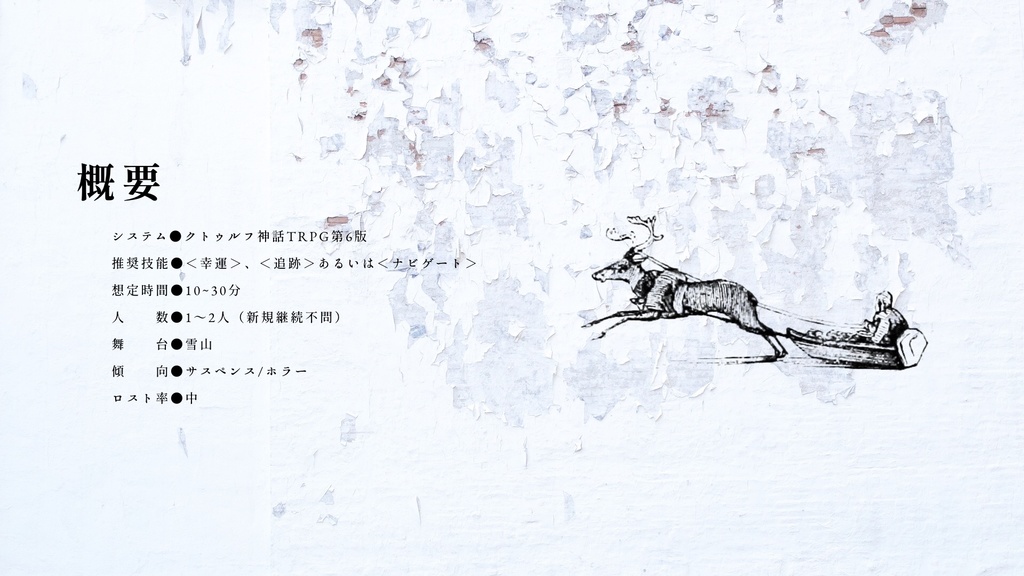 概要
システム●クトゥルフ神話TRPG第6版
推奨技能●<幸運>、<追跡>あるいは<ナビゲート>
想定時間●10~30分
人　　数●1～2人（新規継続不問）
舞　　台●雪山
傾　　向●サスペンス/ホラー
ロスト率●中